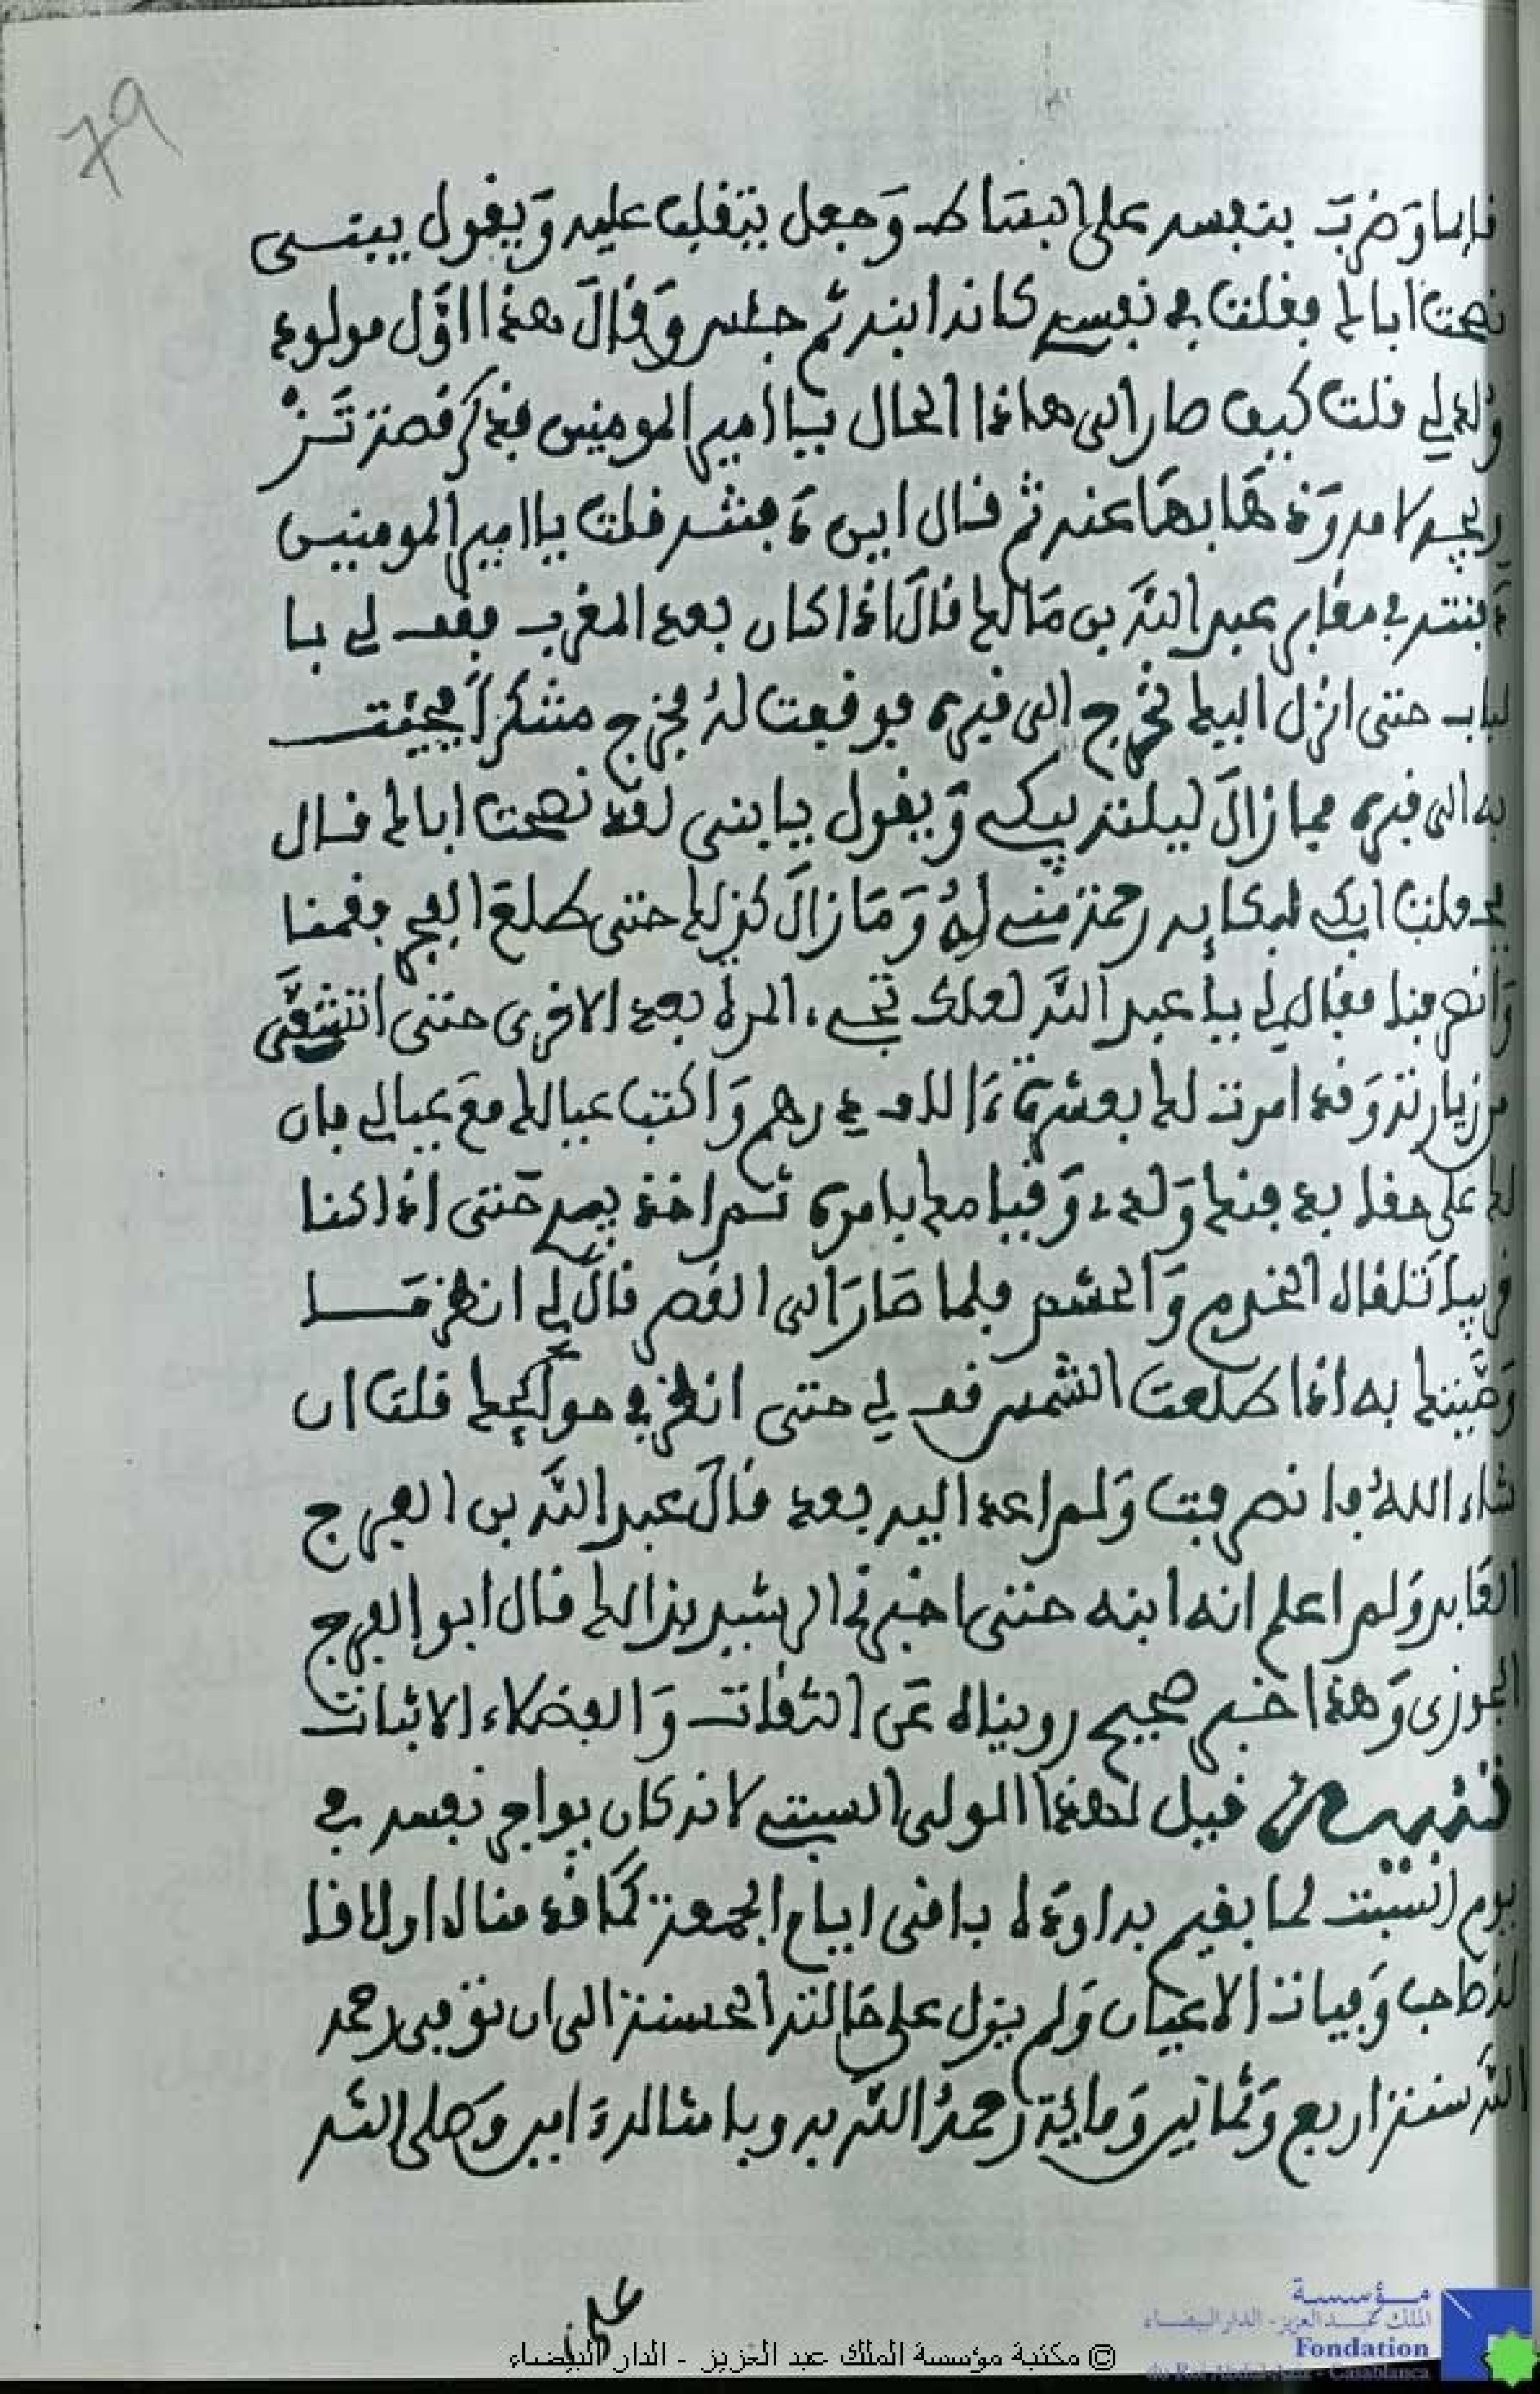 79
قايما وضرب بنفسه على البساط وجعل يتقلب عليه ويقول يبنى
نصحت اباك فقلت في نفسي كانه ابنه ثم جلس وقال هذا اول مولود
ولد لي قلت كيف صار الى هاذا الحال يا امير المومنين فذكر قصة تز
ويجه لامه وذهابها عنه ثم قال اين دفنته قلت يا امير المومنين
دفنته في مقابر عبد الله بن مالك قال اذا كان بعد المغرب فقف لي با
لباب حتى انزل اليك نخرج الى قبره فوقفت له فخرج متنكرا فجيئت
به الى قبره فما زال ليلته يبكي ويقول يا بني لقد نصحت اباك قال
فجعلت ابكي لبكايه رحمة مني له وما زال كذلك حتى طلع الفجر فقمنا
وانصرفنا فقال لي يا عبد الله لعلك تجيء المرة بعد الاخرى حتى انتشقى
من زيارته وقد امرت لك بعشرة ءالاف درهم واكتب عيالك مع عيالي فان
لك علي حقا بدفنك ولدي وقيامك بامره ثم اخذ بيدي حتى اذا كنا
قريبا تلقاه الخدم والحشم فلما صار الى القصر قال لي انظر ما
وصيتك به اذا طلعت الشمس قف لي حتى انظر في حوائجك قلت ان
شاء الله فانصرفت ولم اعد اليه بعد قال عبد الله بن الفرج
العابد ولم اعلم انه ابنه حتى اخبرني الرشيد بذالك قال ابو الفرج
الجوزى وهذا خبر صحيح رويناه عن الثقات والفضلاء الاثبات
تنبيه قيل لهذا المولى السبتي لانه كان يواجر نفسه في
يوم السبت لما يقيم به اوده باقى ايام الجمعة كما قد مناه اولا قا
له صاحب وفيات الاعيان ولم يزل على حالته الحسنة الى ان توفي رحمه
الله سنة اربع وثمانين ومائة رحمه الله به وبامثاله ءامين وصلى الله
على
© مكتبة مؤسسة الملك عبد العزيز - الدار البيضاء
مؤسسة
الملك عبد العزيز - الدار البيضاء
Fondation
du Roi Abdul-Aziz - Casablanca